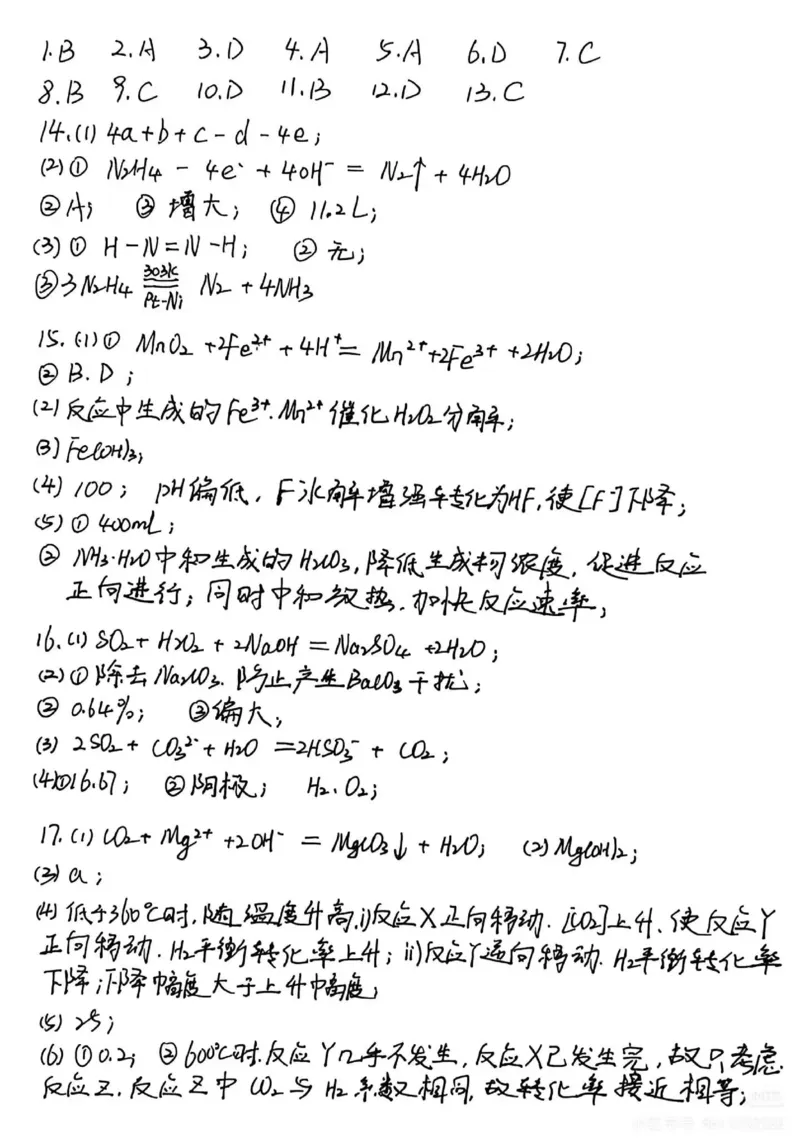 1.B 2.A 3.D 4.A 5.A 6.D 7.C
8.B 9.C 10.D 11.B 12.D 13.C
14.(1) 4a+b+c-d-4e;
(2)① N₂H₄ - 4e⁻ + 4OH⁻ = N₂↑ + 4H₂O
②A; ③增大; ④11.2L;
(3)① H-N=N-H; ②无;
③3N₂H₄ =303K/Pt-Ni= N₂ + 4NH₃
15.(1)① MnO₂ +2Fe²⁺ +4H⁺= Mn²⁺+2Fe³⁺ +2H₂O;
②B.D;
(2)反应中生成的Fe³⁺.Mn²⁺催化H₂O₂分解;
(3)Fe(OH)₃;
(4)100; pH偏低,F⁻水解增强转化为HF,使[F⁻]下降;
(5)①400mL;
② NH₃·H₂O中和生成的H₂CO₃,降低生成物浓度,促进反应
正向进行;同时中和放热.加快反应速率;
16.(1)SO₂+H₂O₂+2NaOH=Na₂SO₄+2H₂O;
(2)①除去Na₂CO₃.防止产生BaCO₃干扰;
②0.64%; ③偏大;
(3) 2SO₂+CO₃²⁻+H₂O=2HSO₃⁻+CO₂;
(4)①16.67; ②阴极; H₂、O₂;
17.(1)CO₂+Mg²⁺+2OH⁻=MgCO₃↓+H₂O; (2)Mg(OH)₂;
(3)a;
(4)低于360℃时.随温度升高,i)反应X正向移动.[CO₂]上升、使反应Y
正向移动.H₂平衡转化率上升;ii)反应Y逆向移动.H₂平衡转化率
下降;下降幅度大于上升幅度;
(5)25;
(6)①0.2; ②600℃时.反应Y几乎不发生,反应X已发生完,故只考虑
反应Z.反应Z中CO₂与H₂系数相同,故转化率接近相等;